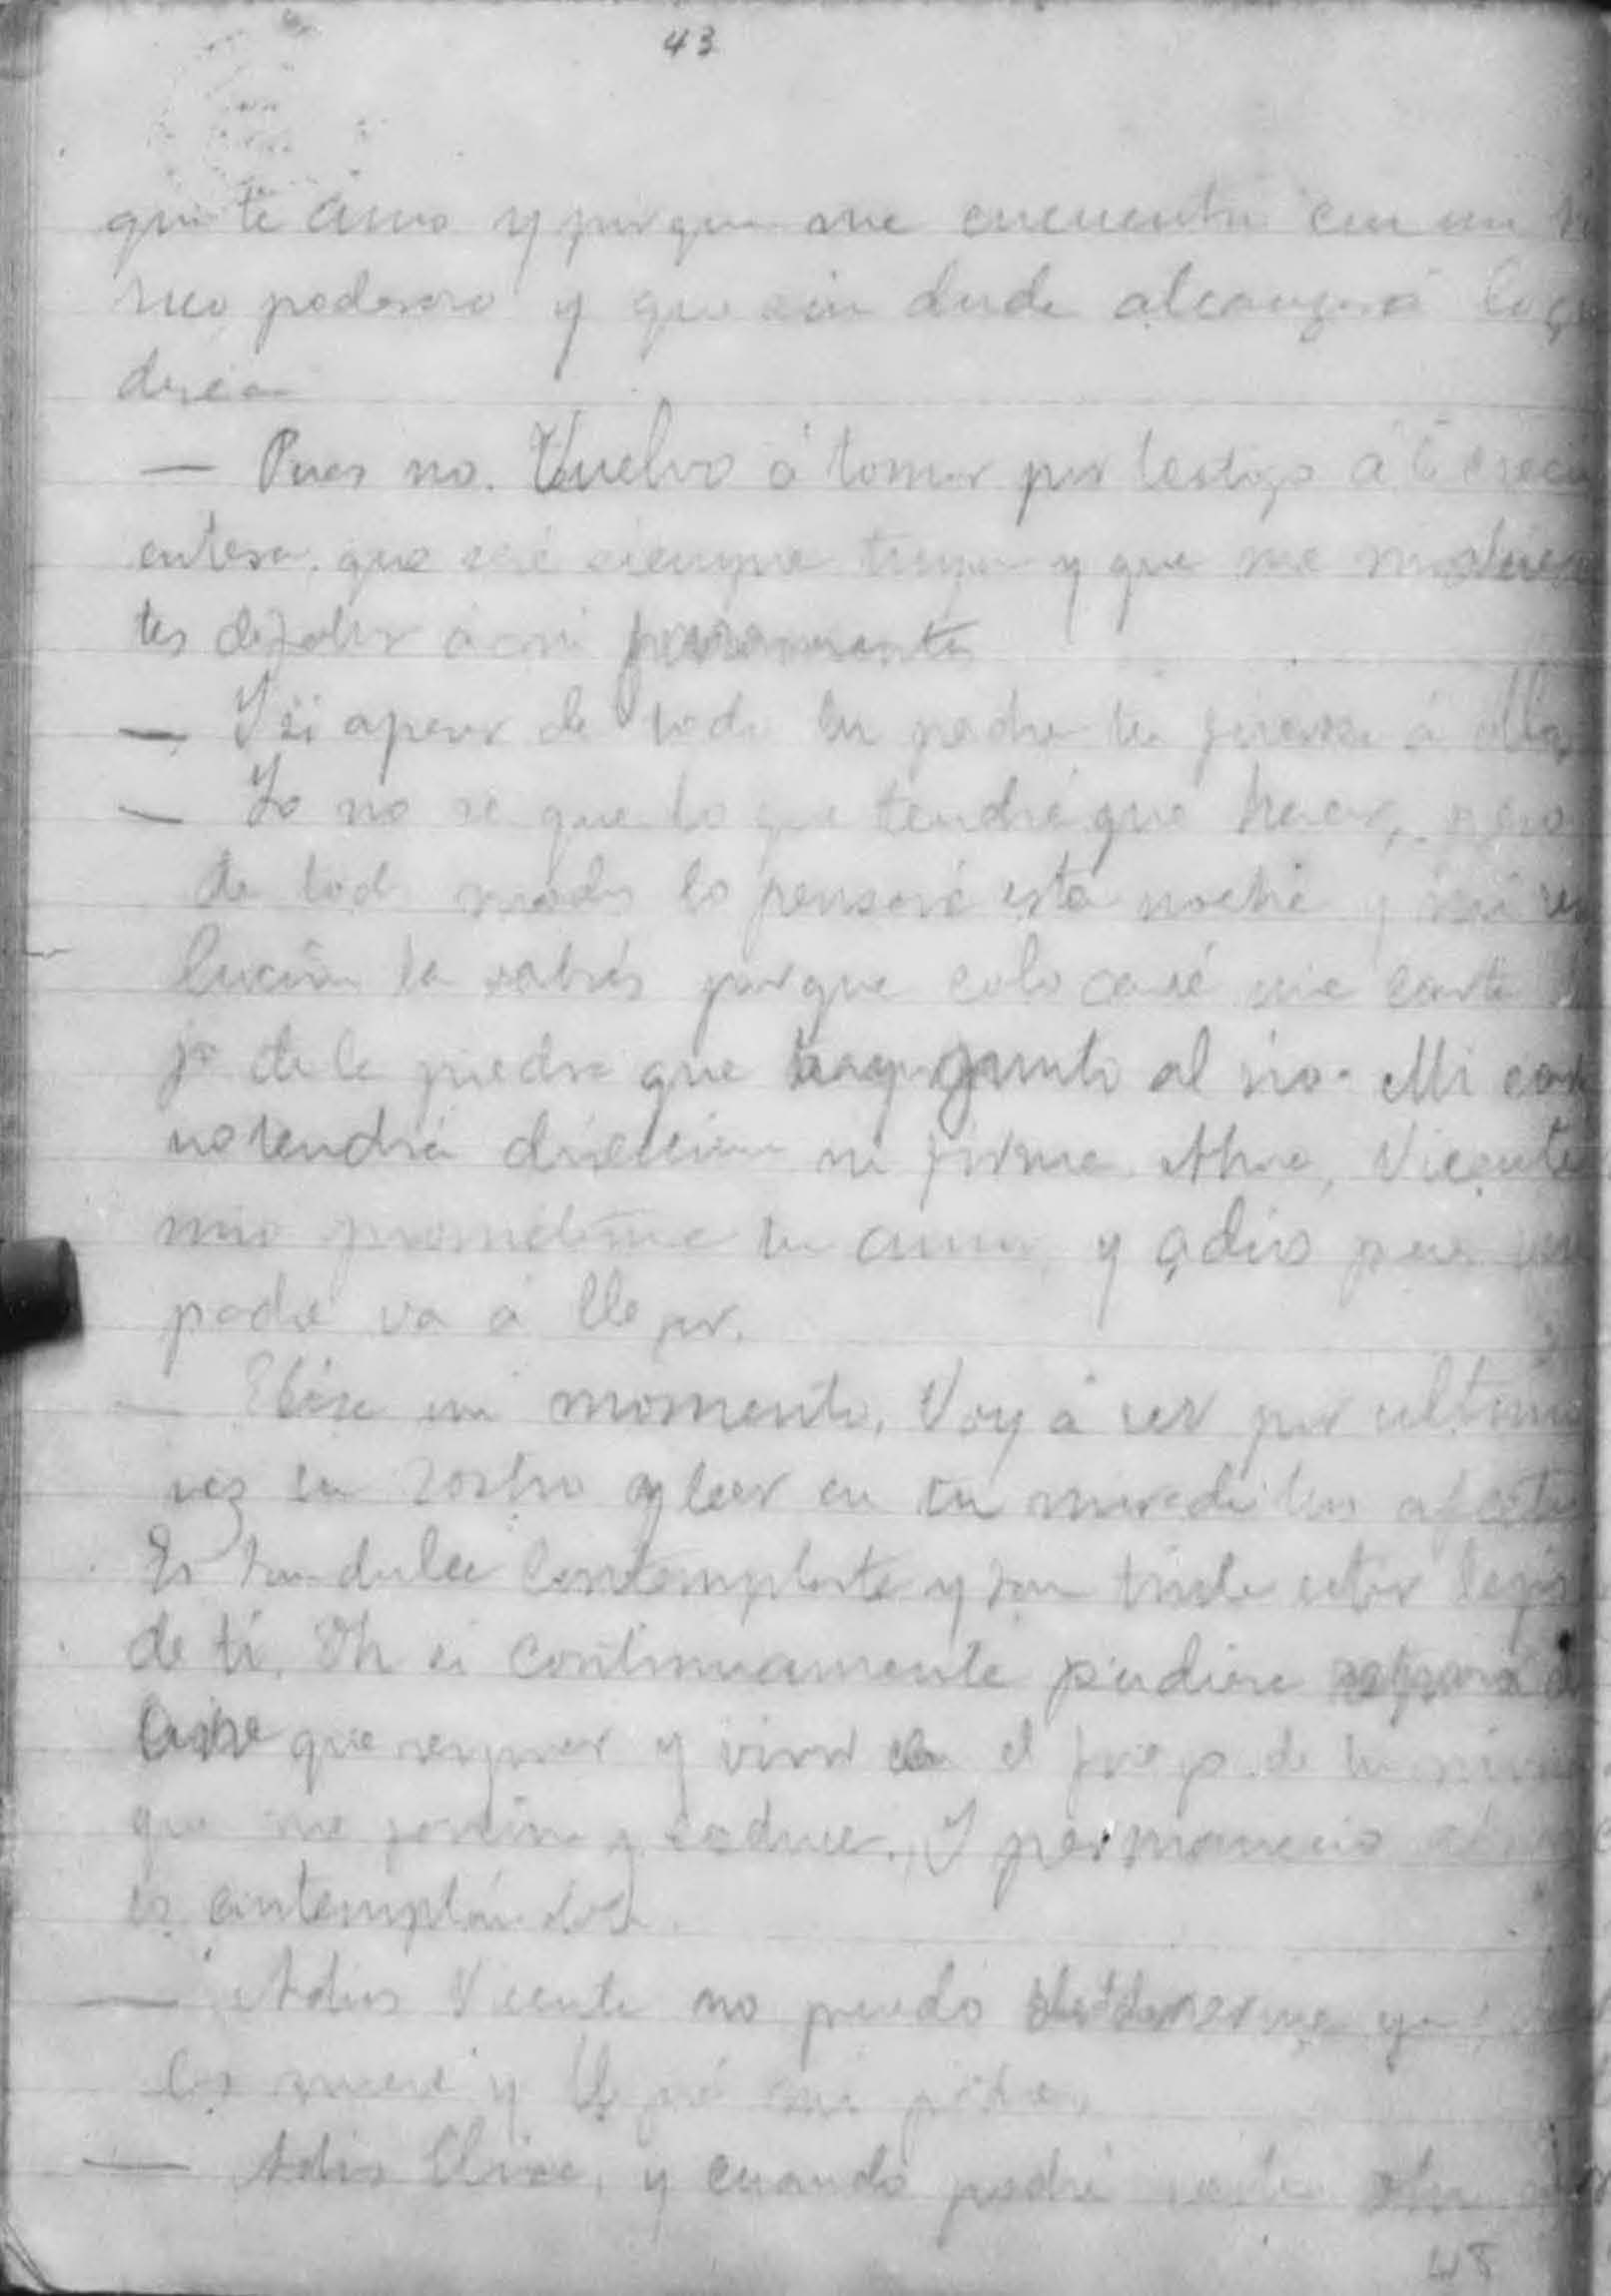 43
que te amo y porque me encuentro con un
rico poderoso y que sin duda alcanzará lo
desea
— Pues no. Vuelvo á tomar por testigo á la
entera, que seré siempre tuya y que me
tes de faltar á mi
— Y si apesar de todo tu padre te á ella
— Yo no se que lo que tendré que hacer, pero
de todos modos lo pensaré esta noche y mi
lución la sabrás porque colocaré una carta
jo de la piedra que hay junto al rio. Mi
no tendrá dirección ni firma. Ahora, Vicente
mio prometeme tu amor, y adios pues mi
padre va á llegar.
— Elisa un momento, Voy á ver por ultima
vez tu rostro y leer en tu mirada tus
Es tan dulce contemplarte y tan triste estar lejos
de ti. Oh si continuamente pudiera
aire que respiras y vivir en el fuego de tu
que me fascina y seduce. Y permaneció
contemplándola.
— Adios Vicente no puedo detenerme ya
las nueve y llegará mi padre.
— Adios Elisa, y cuando podré
48